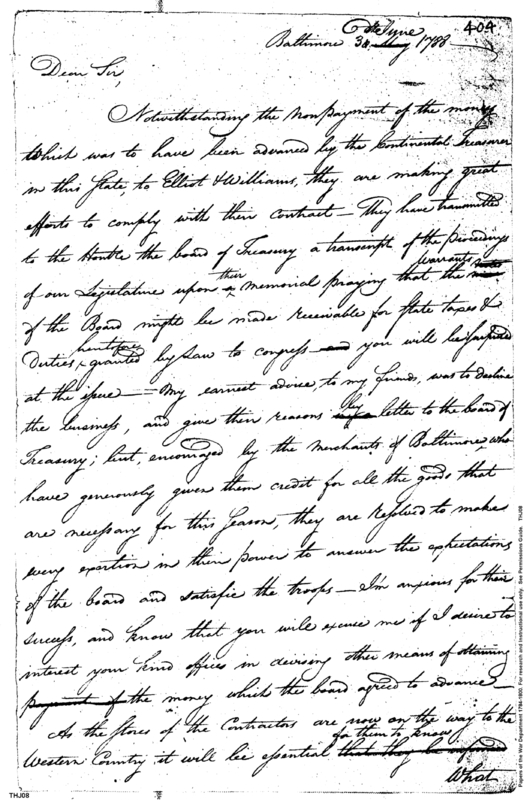 404
6th June
Baltimore 30 May 1788
Dear Sir,
Notwithstanding the Nonpayment of the money
which was to have been advanced by the Continental Treasurer
in this State, to Elliot & Williams, they are making great
efforts to comply with their contract — They have transmitted
to the Honble the board of Treasury a transcript of the proceedings
warrants
of our Legislature upon their memorial praying that the
of the Board might be made receivable for State taxes &
heretofore
Duties, granted by Law to congress — and you will be surprized
at the issue — My earnest advice, to my friends, was to decline
the business, and give their reasons by letter to the board of
Treasury; but, encouraged by the merchants of Baltimore, who
have generously given them credit for all the goods that
are necessary for this Season, they are resolved to make
every exertion in their power to answer the expectations
of the board and satisfie the troops — I'm anxious for their
success, and know that you will excuse me if I desire to
interest your kind offices in devising other means of obtaining
payment of the money which the board agreed to advance —
As the stores of the Contractors are now on the way to the
for them to know
Western Country it will be essential that they be informed
What
THJ08
Papers of the War Department 1784-1800. For research and instructional use only. See Permissions Guide. THJ08